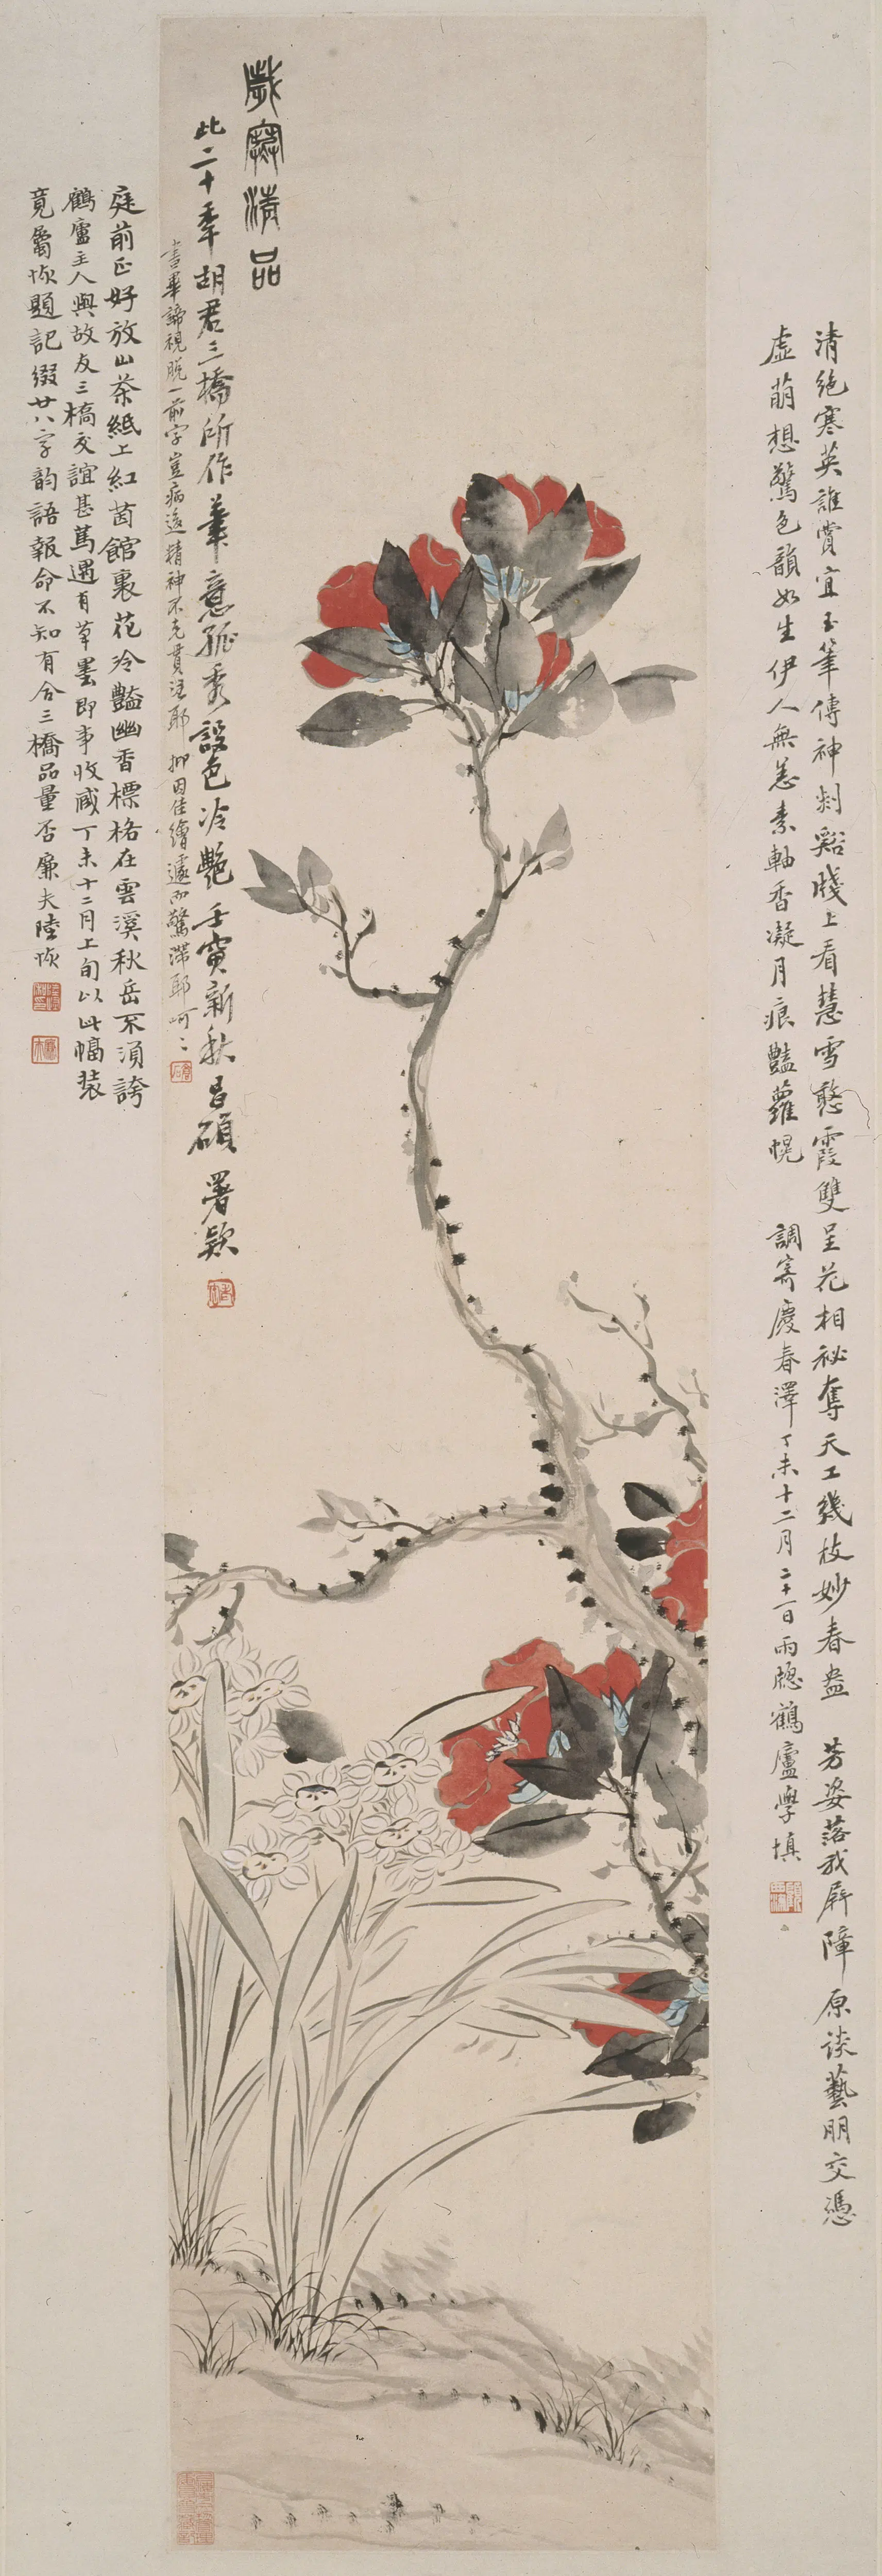 歲寒清品
此二十年胡君三橋所作筆意孤秀設色冷艷壬寅新秋昌碩署款
書畢諦視脫一前字豈病後精神不克貫注耶抑因佳繪遽而驚滯耶呵〻
清絕寒英誰賞宜玉筆傳神剡谿牋上看慧雪憨霞雙呈花相祕奪天工幾枝妙春盎 芳姿落我屏障原談藝朋交憑
虛萌想驚色韻如生伊人無恙素軸香凝月痕豔蘿幌 調寄慶春澤丁未十二月二十一日雨牕鶴廬學填
庭前正好放山茶紙上紅茵館裏花冷豔幽香標格在雲溪秋岳不須誇
鶴廬主人與故友三橋交誼甚篤遇有草墨即事收藏丁未十二月上旬以此幅裝
竟屬恢題記綴廿八字韵語報命不知有合三橋品量否廉夫陸恢